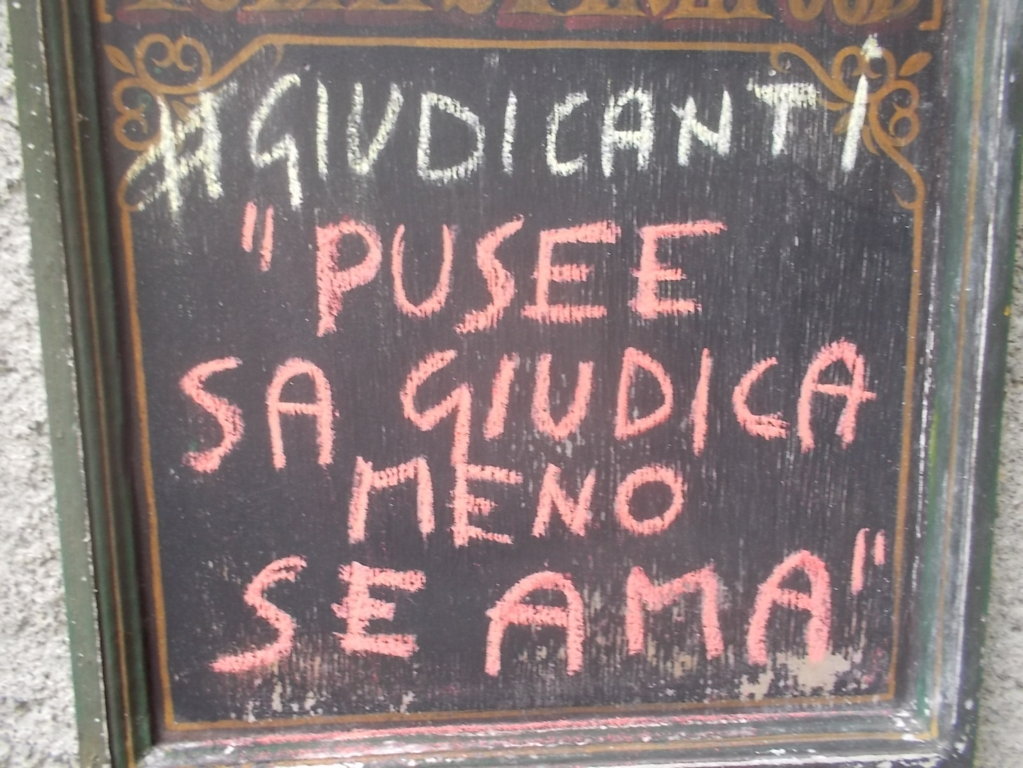 #GIUDICANTI
"PUSEE
SA GIUDICA
MENO
SE AMA"